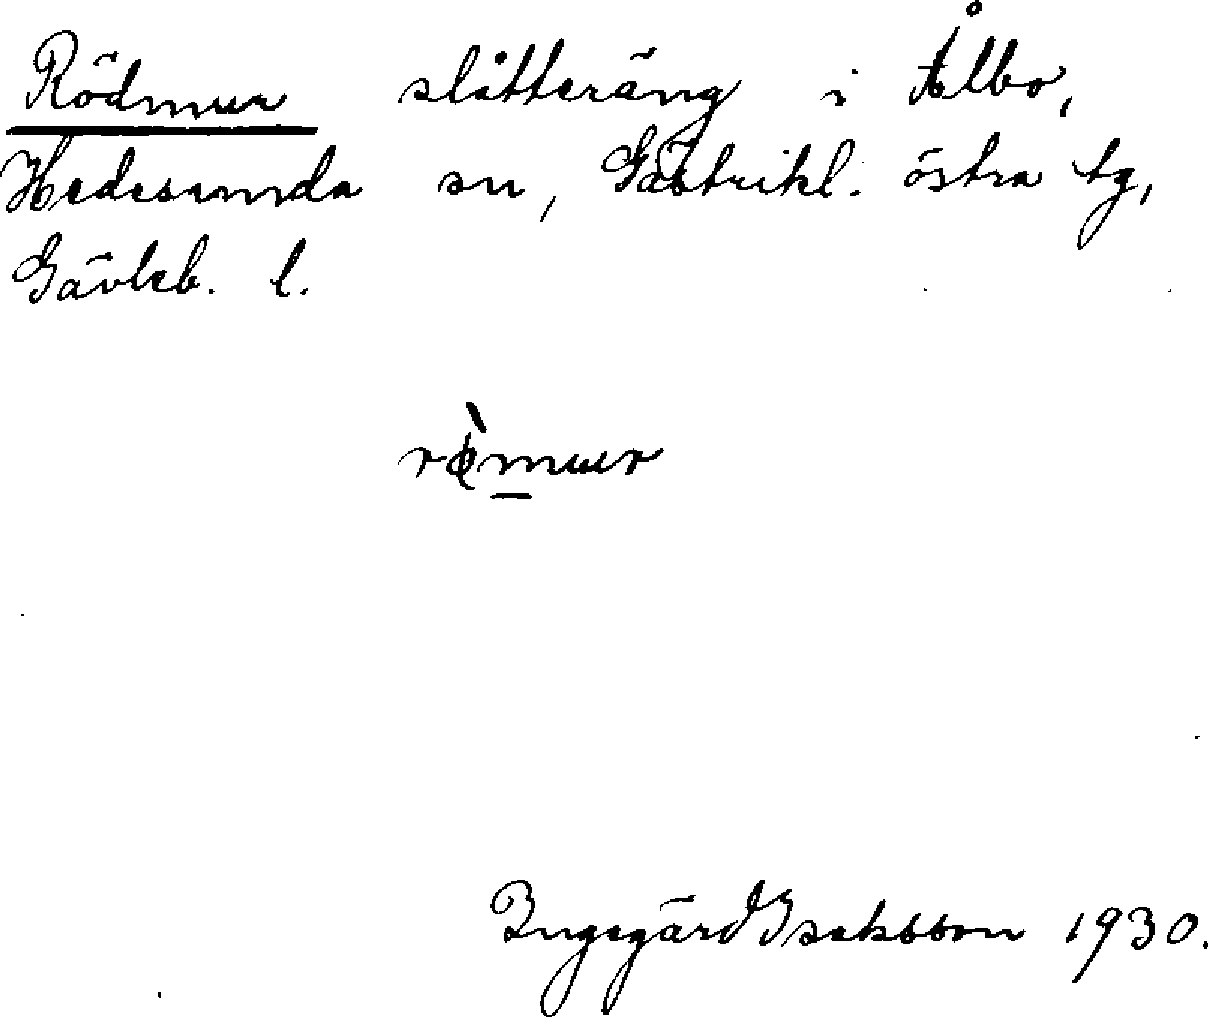 Rödmur slåtteräng i Ålbo,
Hedesunda sn, Gästrikl. östra tg,
Gävleb. l.
rø̀mur
Ingegärd Isaksson 1930.